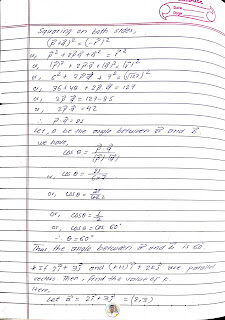 Squaring on both sides,
(p⃗+q⃗)² = (-r⃗)²
or, p⃗² + 2p⃗.q⃗ + q⃗² = r⃗²
or, |p⃗|² + 2p⃗.q⃗ + |q⃗|² = |r⃗|²
or, 6² + 2p⃗.q⃗ + 7² = (√127)²
or, 36+49 + 2p⃗.q⃗ = 127
or, 2p⃗.q⃗ = 127-85
or, 2p⃗.q⃗ = 42
∴ p⃗.q⃗ = 21
Let, θ be the angle between and
we have,
cosθ = p⃗.q⃗ / |p⃗|.|q⃗|
or, cosθ = 21 / 6×7
or, cosθ = 21 / 42
or, cosθ = 1/2
or, cosθ = cos 60°
∴ θ = 60°
Thus, the angle between and is 60°.
If 2i⃗ + 3j⃗ and (k+1)i⃗ + 2kj⃗ are parallel
vectors then, find the value of k.
Here,
Let a⃗ = 2i⃗ + 3j⃗ = (2,3)